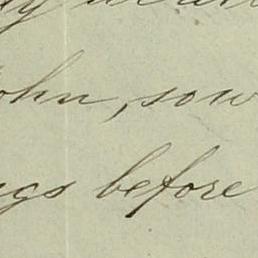 ohn, sow
ngs before